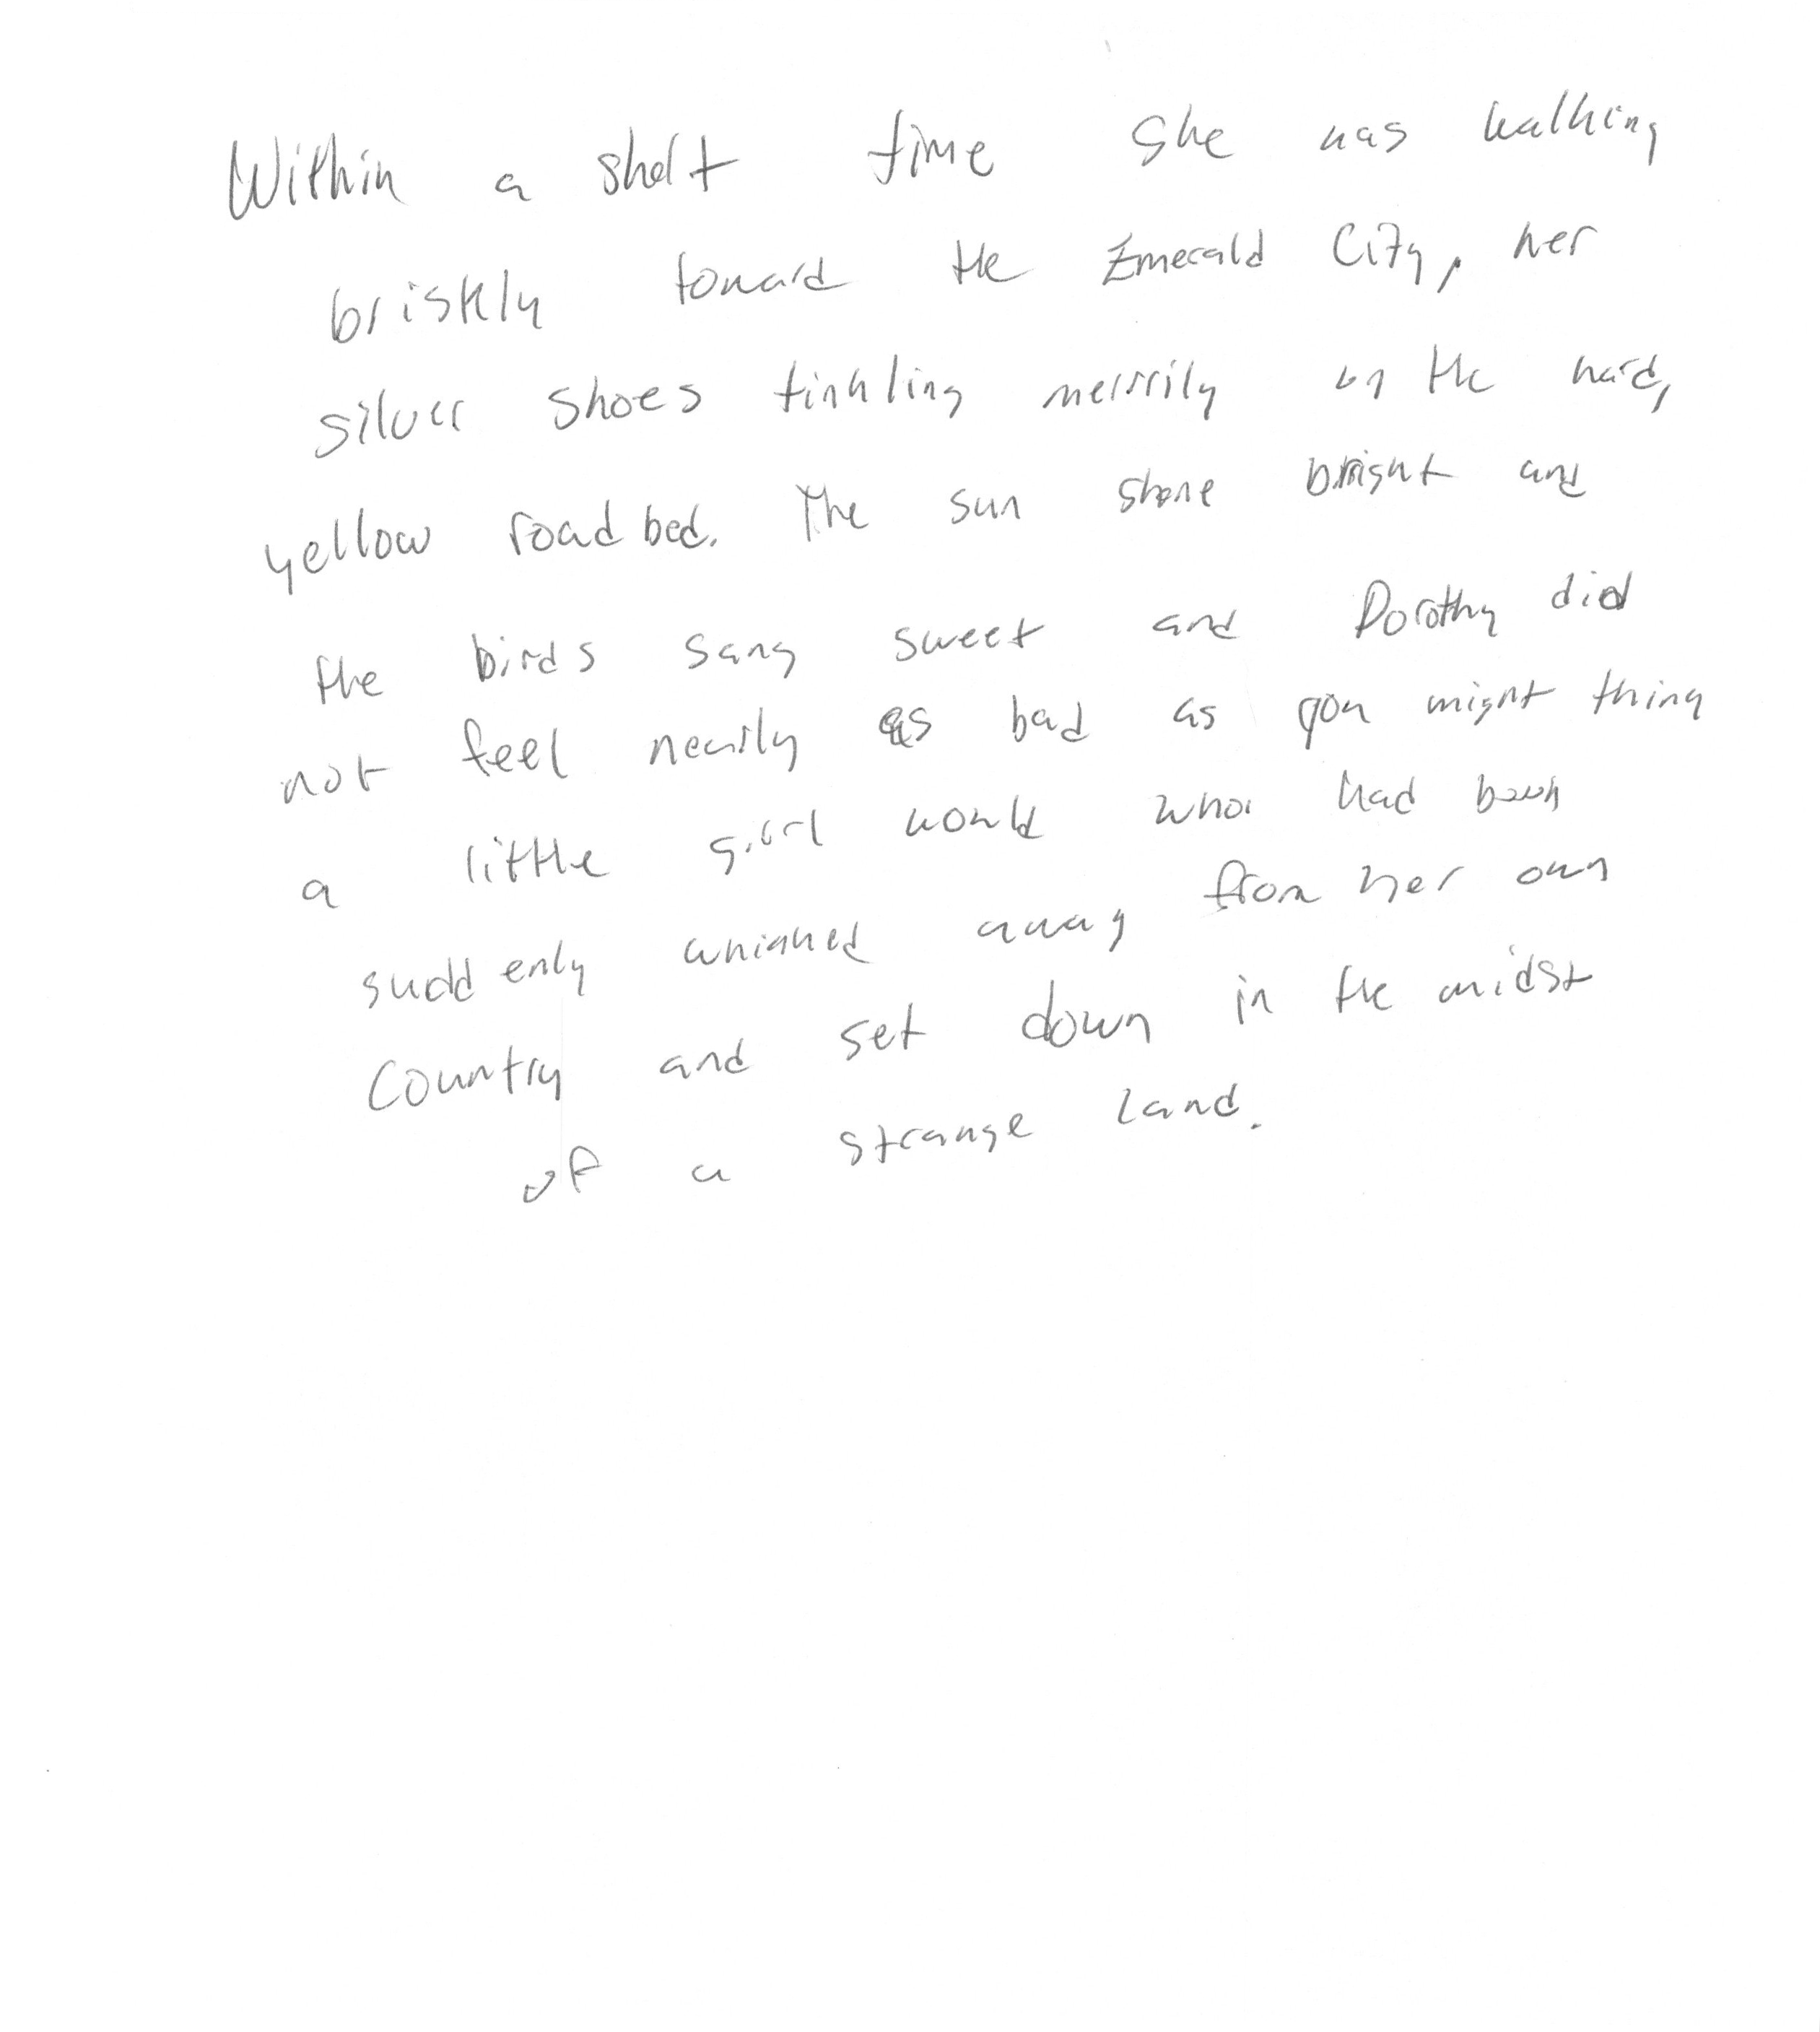 Within a short time she was walking
briskly toward the Emerald City, her
silver shoes tinkling merrily on the hard,
yellow roadbed. The sun shone bright and
the birds sang sweet and Dorothy did
not feel nearly as bad as you might thing
a little girl would who had been
suddenly whisked away from her own
Country and set down in the midst
of a strange land.